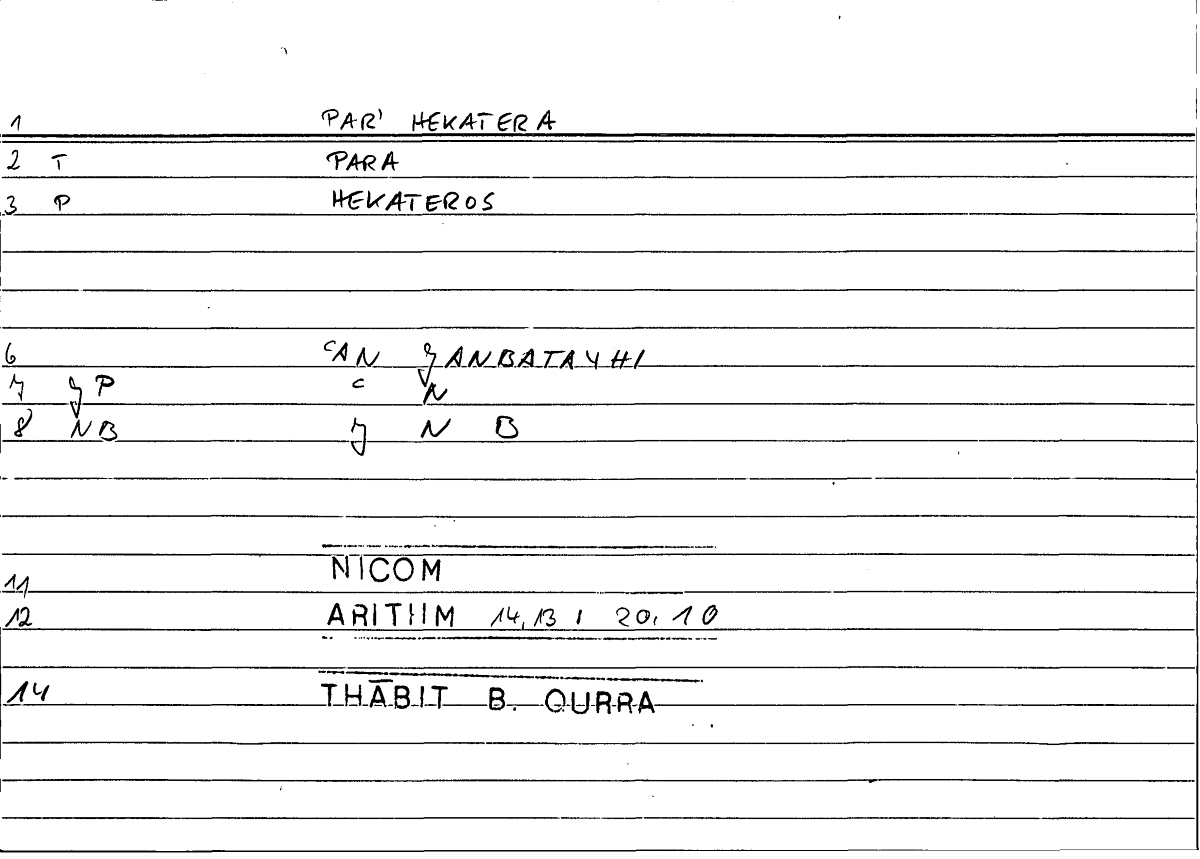 1 PAR' HEKATERA
2 T PARA
3 P HEKATEROS
6 ʿAN ǧANBATAYHI
7 ǧP ʿ N
8 NB ǧ N B
11 NICOM
12 ARITHM 14,13 ; 20,10
14 THĀBIT B. QURRA